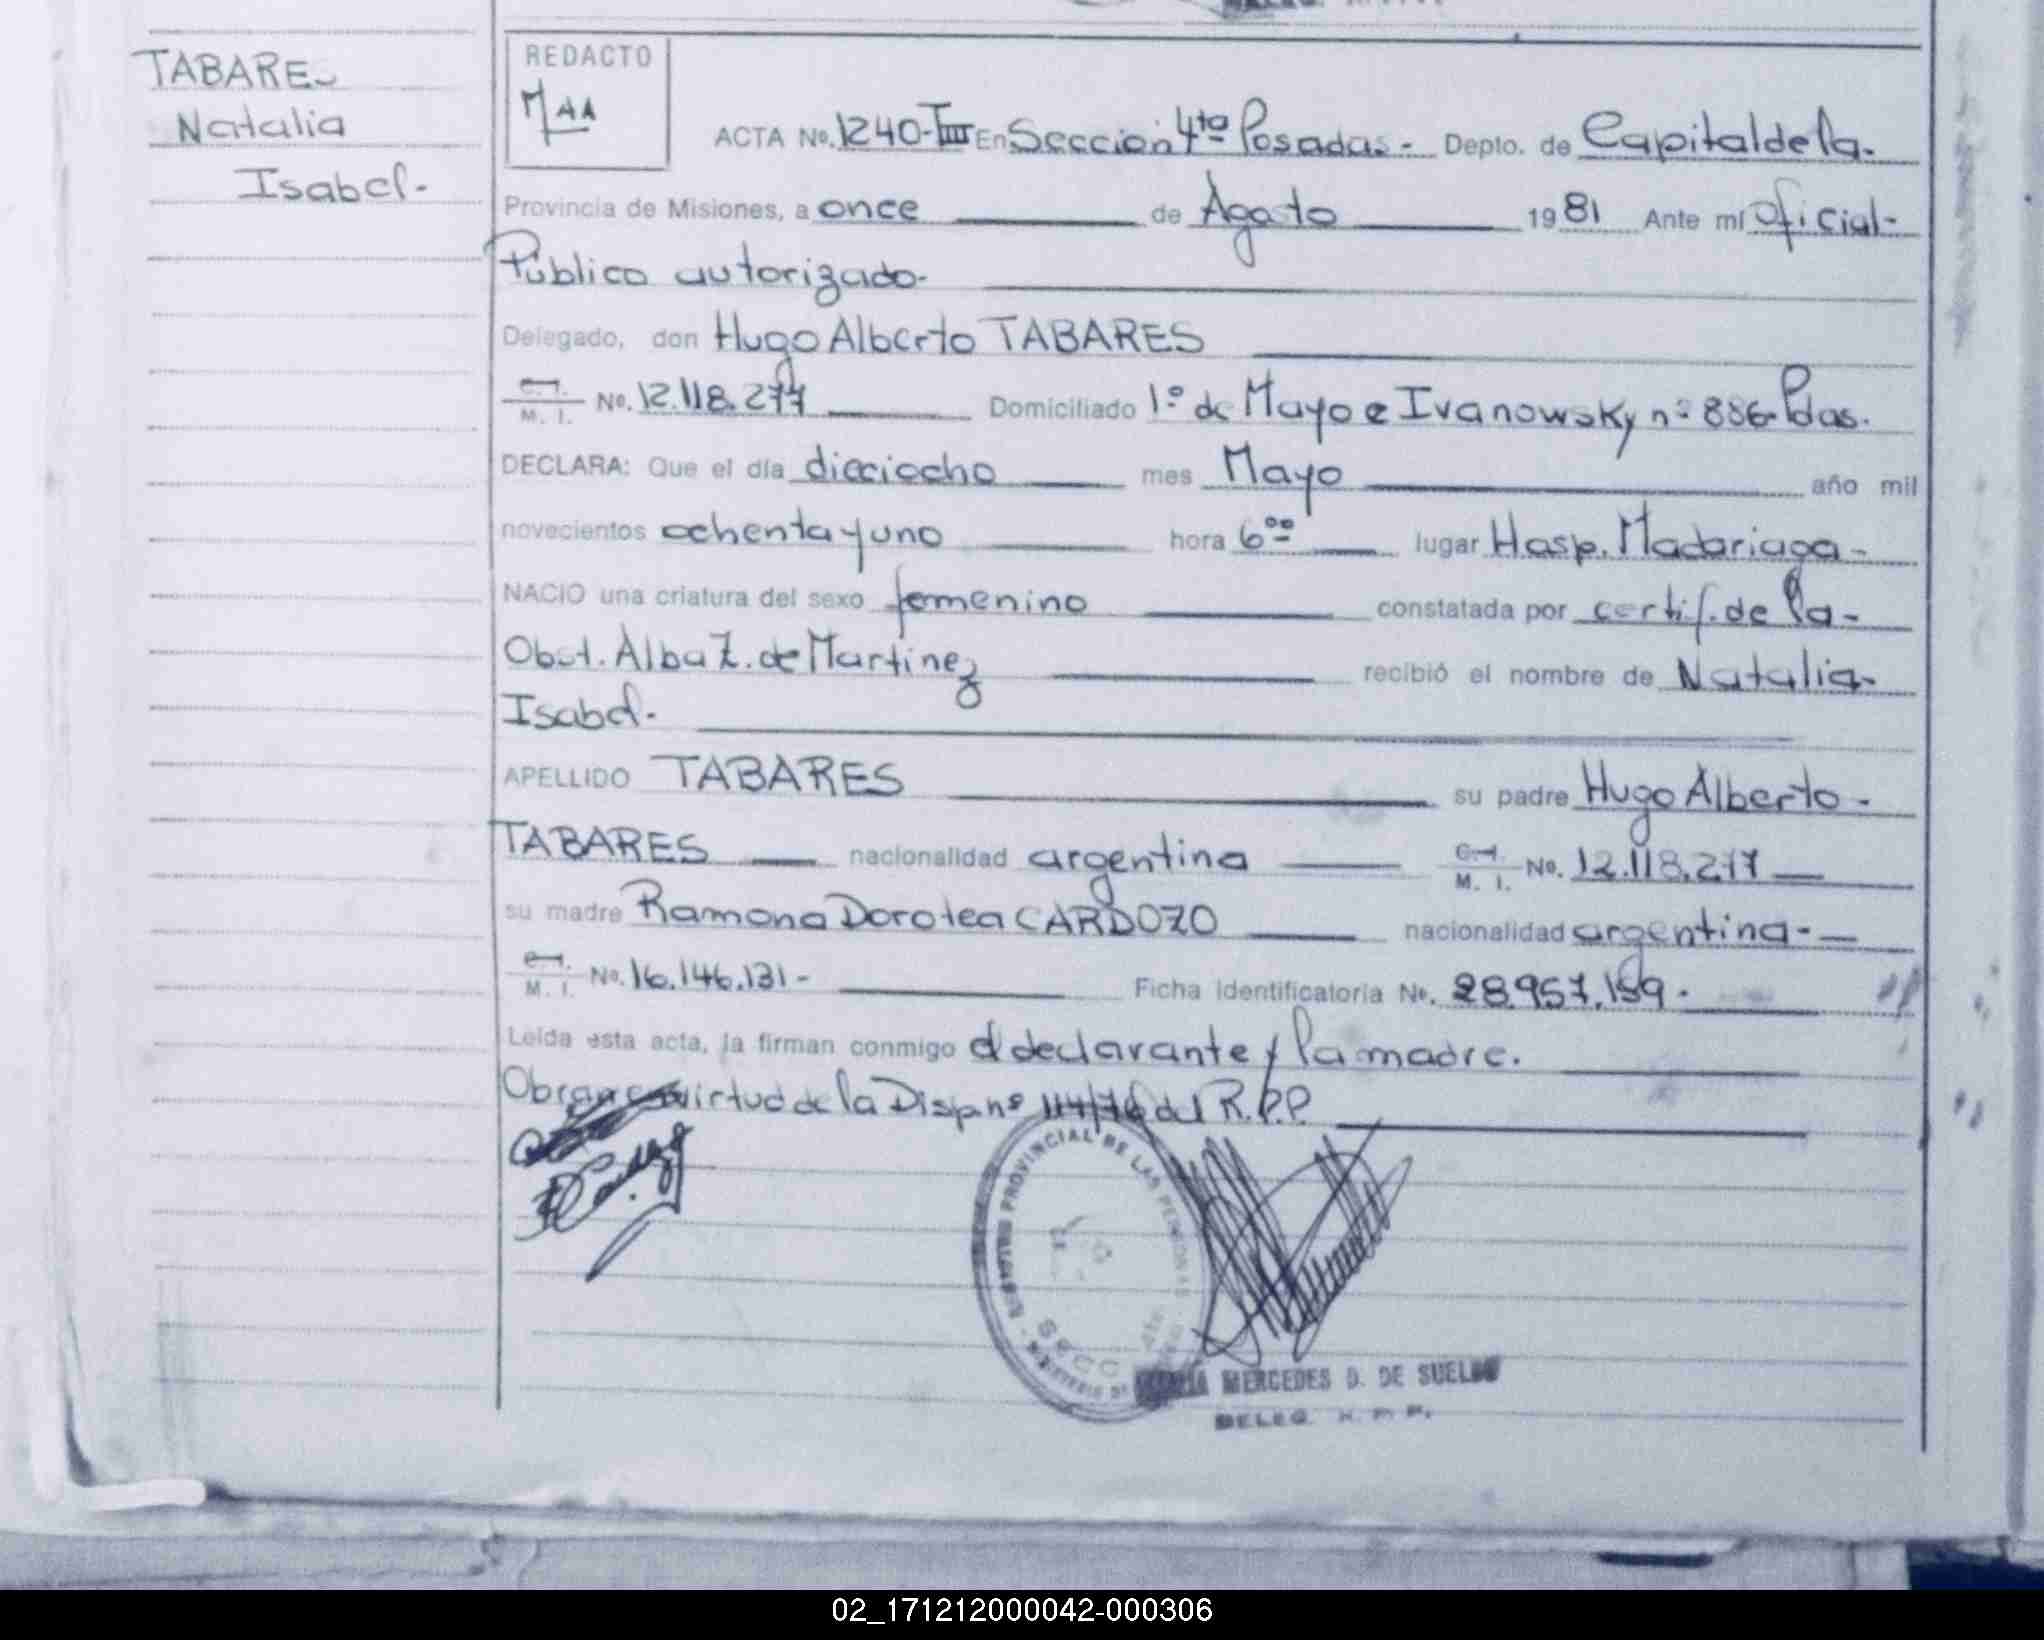 TABARES
Natalia
Isabel.-
REDACTO
MAA
ACTA No. 1240-III En Sección 4ta Posadas.- Depto. de Capital de la.
Provincia de Misiones, a once de Agosto 1981 Ante mí Oficial-
Público autorizado.-
Delegado, don Hugo Alberto TABARES
C. I.
M. I. No. 12.118.277 Domiciliado 1º de Mayo e Ivanowsky nº 886-Pdas.
DECLARA: Que el día dieciocho mes Mayo año mil
novecientos ochenta y uno hora 6:00 lugar Hosp. Madariaga-
NACIO una criatura del sexo femenino constatada por certif. de la-
Obst. Alba Z. de Martinez recibió el nombre de Natalia-
Isabel.-
APELLIDO TABARES su padre Hugo Alberto-
TABARES nacionalidad argentina C. I.
M. I. No. 12.118.277
su madre Ramona Dorotea CARDOZO nacionalidad argentina.-
C. I.
M. I. No. 16.146.131- Ficha Identificatoria No. 28.957.159.-
Leída esta acta, la firman conmigo el declarante y la madre.
Obran en virtud de la Disp. nº 114/76 del R.P.P.
REGISTRO PROVINCIAL DE LAS PERSONAS
SECC 4ta
MINISTERIO DE
MERCEDES D. DE SUELDO
DELEG. R. P. P.
02_171212000042-000306